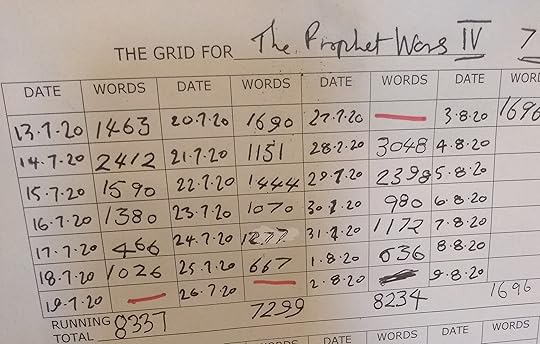 THE GRID FOR The Prophet Wars IV 7
DATE WORDS DATE WORDS DATE WORDS DATE WOR
13.7.20 1463 20.7.20 1690 27.7.20 3.8.20 1696
14.7.20 2412 21.7.20 1151 28.7.20 3048 4.8.20
15.7.20 1590 22.7.20 1444 29.7.20 2398 5.8.20
16.7.20 1380 23.7.20 1070 30.7.20 980 6.8.20
17.7.20 466 24.7.20 1277 31.7.20 1172 7.8.20
18.7.20 1026 25.7.20 667 1.8.20 636 8.8.20
19.7.20 26.7.20 2.8.20 9.8.20
RUNNING TOTAL 8337 7299 8234 1696
DATE WORDS DATE WORDS DATE WORDS DATE WORDS